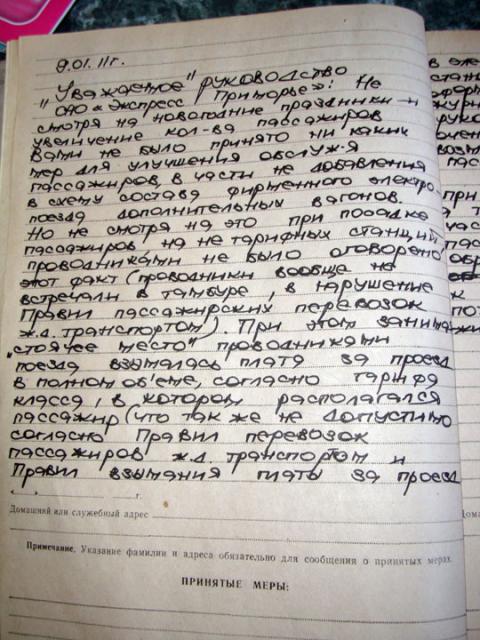 9.01.11г.
"Уважаемое" руководство
ОАО "Экспресс Приморье": Не
смотря на новогодние праздники и
увеличение кол-ва пассажиров
Вами не было принято ни каких
мер для улучшения обслуж-я
пассажиров, в части не добавления
в схему состава фирменного электро-
поезда дополнительных вагонов.
Но не смотря на это при посадке
пассажиров на не тарифных станций
проводниками не было оговорено
этот факт (проводники вообще не
встречали в тамбуре, в нарушение
Правил пассажирских перевозок
ж.д. транспортом). При этом занимая
"стоячее место" проводниками
поезда взымалась плата за проезд
в полном об'ёме, согласно тарифа
класса, в котором располагался
пассажир (что так же не допустимо
согласно Правил перевозок
пассажиров ж.д. транспортом и
Правил взымания платы за проезд
г.
Домашний или служебный адрес
Примечание. Указание фамилии и адреса обязательно для сообщения о принятых мерах.
ПРИНЯТЫЕ МЕРЫ: